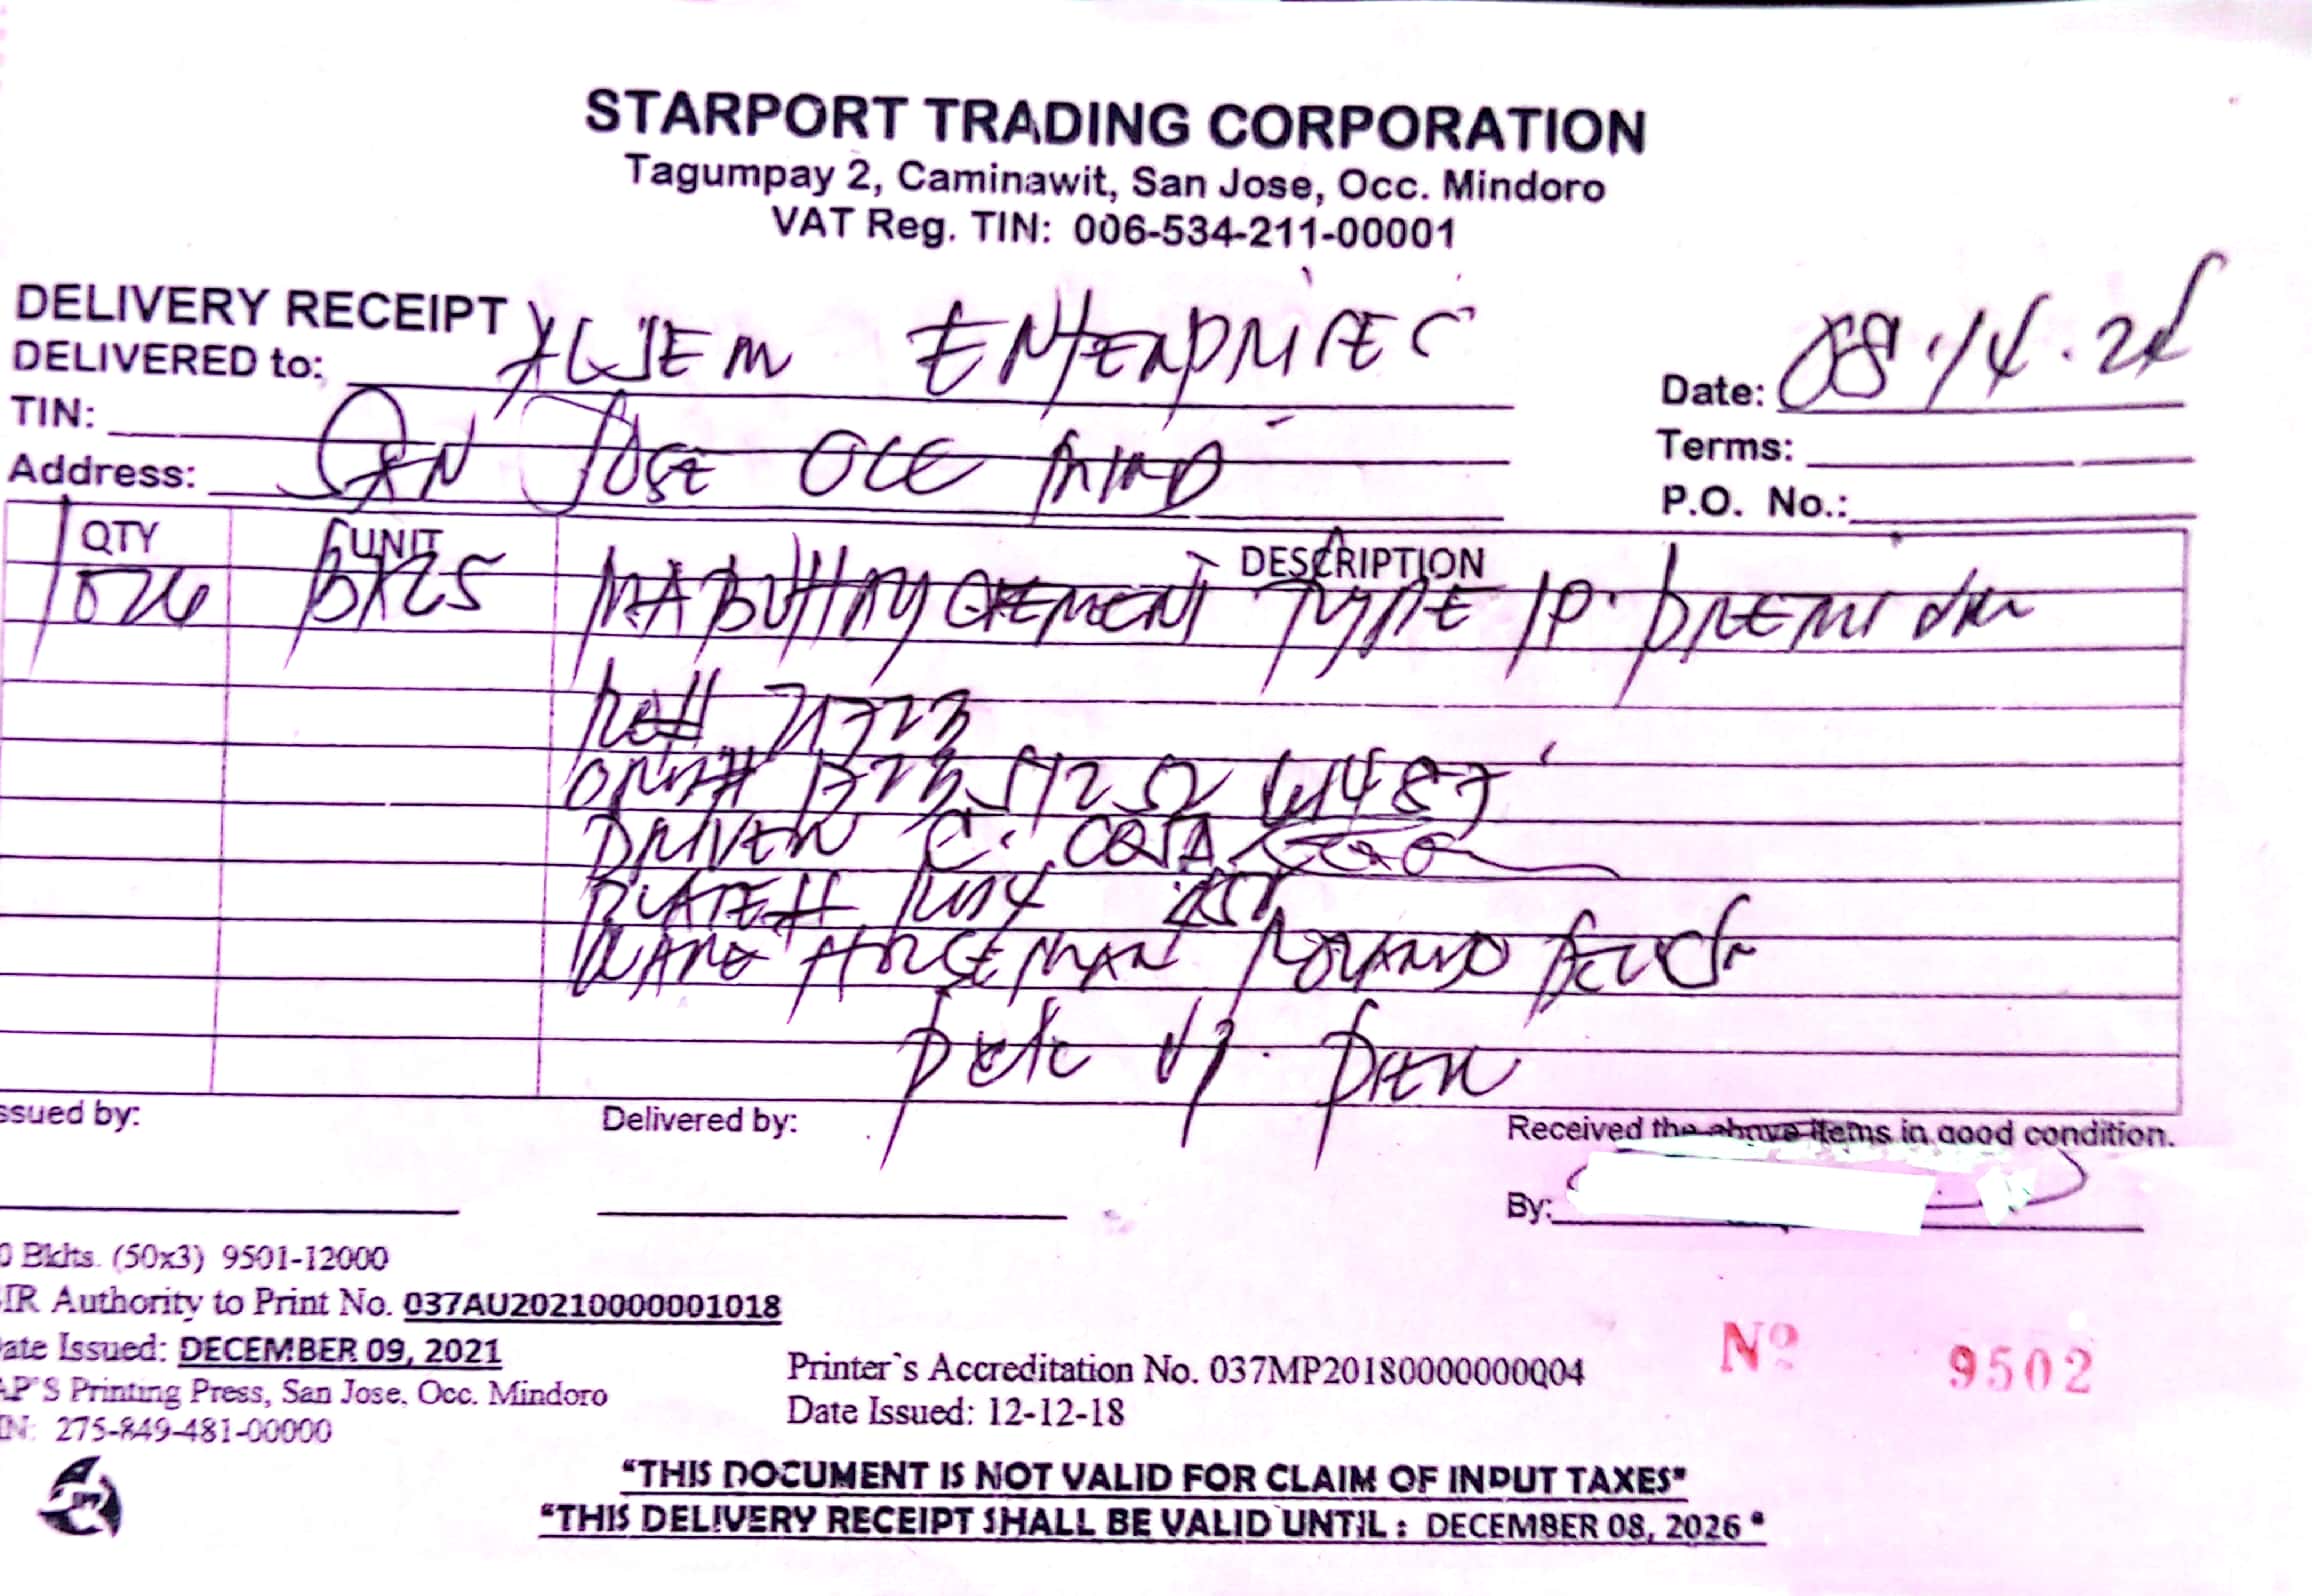 STARPORT TRADING CORPORATION
Tagumpay 2, Caminawit, San Jose, Occ. Mindoro
VAT Reg. TIN: 006-534-211-00001
DELIVERY RECEIPT
DELIVERED to: ENTERPRISES
Date: 08.14.24
TIN:
Terms:
Address: SAN JOSE OCC MIND
P.O. No.:
QTY UNIT DESCRIPTION
MABUHAY CEMENT TYPE 1P PREMIUM
71723
DRIVER C.
PLATE#
WAREHOUSEMAN ROLANDO
Issued by:
Delivered by:
Received the above items in good condition.
By:
Bklts. (50x3) 9501-12000
IR Authority to Print No. 037AU20210000001018
ate Issued: DECEMBER 09, 2021
AP'S Printing Press, San Jose, Occ. Mindoro
IN: 275-849-481-00000
Printer`s Accreditation No. 037MP20180000000004
Date Issued: 12-12-18
Nº 9502
"THIS DOCUMENT IS NOT VALID FOR CLAIM OF INPUT TAXES"
"THIS DELIVERY RECEIPT SHALL BE VALID UNTIL : DECEMBER 08, 2026 "